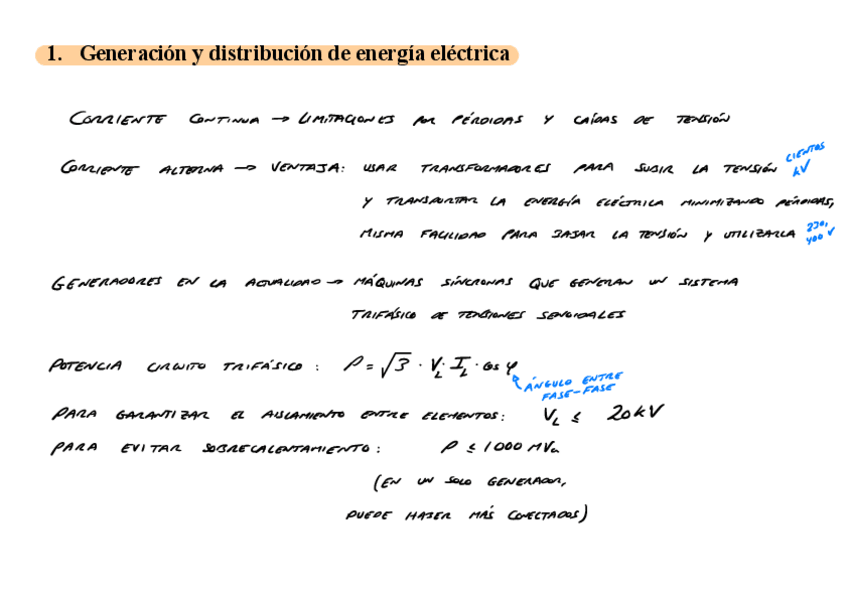 1. Generación y distribución de energía eléctrica
CORRIENTE CONTINUA → LIMITACIONES POR PÉRDIDAS Y CAÍDAS DE TENSIÓN
CORRIENTE ALTERNA → VENTAJA: USAR TRANSFORMADORES PARA SUBIR LA TENSIÓN CIENTOS kV
Y TRANSPORTAR LA ENERGÍA ELÉCTRICA MINIMIZANDO PÉRDIDAS,
MISMA FACILIDAD PARA BAJAR LA TENSIÓN Y UTILIZARLA 230, 400 V
GENERADORES EN LA ACTUALIDAD → MÁQUINAS SÍNCRONAS QUE GENERAN UN SISTEMA
TRIFÁSICO DE TENSIONES SENOIDALES
POTENCIA CIRCUITO TRIFÁSICO: P = √3 · V_L · I_L · cos φ
ÁNGULO ENTRE
FASE-FASE
PARA GARANTIZAR EL AISLAMIENTO ENTRE ELEMENTOS: V_L ≤ 20kV
PARA EVITAR SOBRECALENTAMIENTO: P ≤ 1000 MVa
(EN UN SOLO GENERADOR,
PUEDE HABER MÁS CONECTADOS)